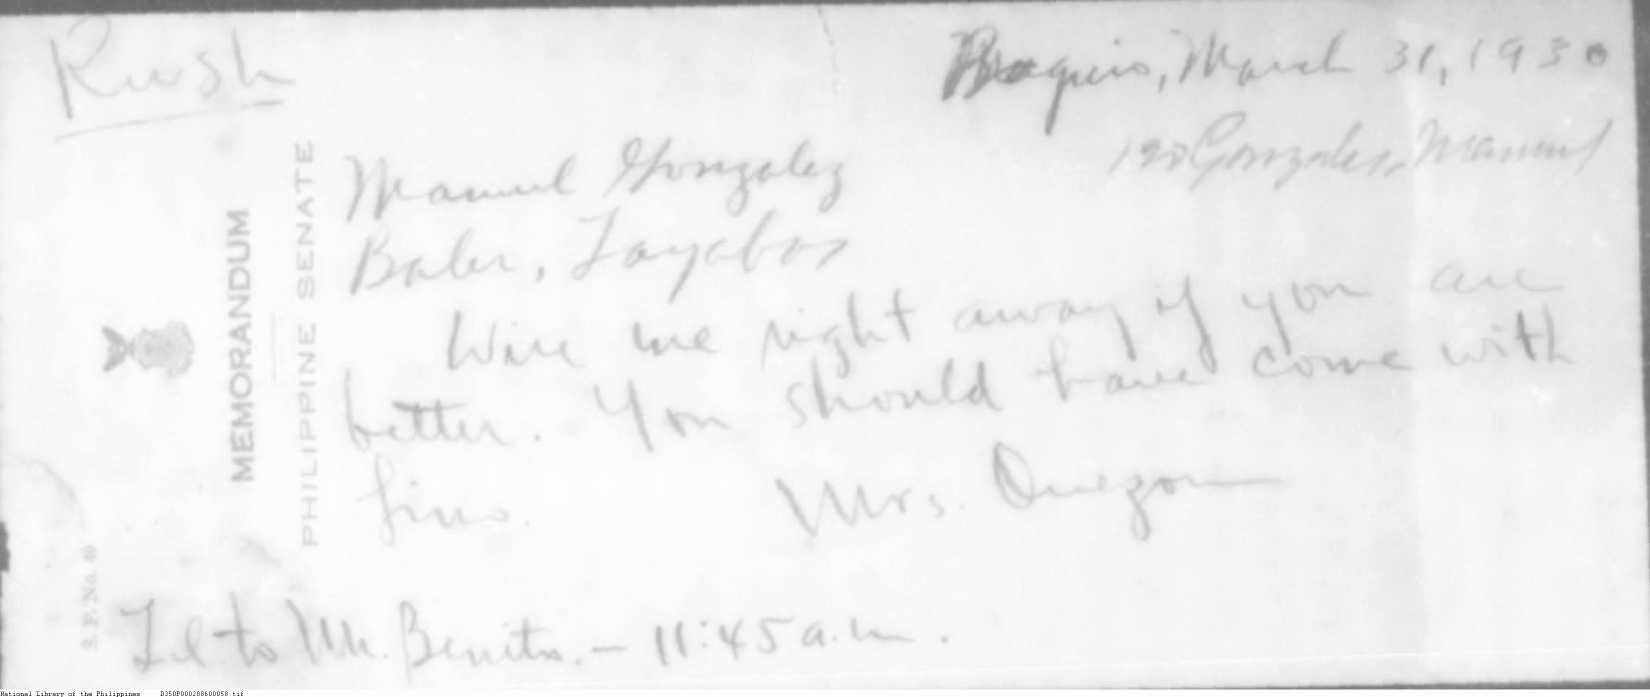 Rush
Baguio, March 31, 1930
190 Gonzales, Manuel
MEMORANDUM
PHILIPPINE SENATE
Manuel Gonzalez
Baler, Tayabas
Wire me right away if you are
better. You should have come with
Lino.
Mrs. Quezon
Tel to Mr. Benito. – 11:45 a.m.
S. P. No. 
National Library of the Philippines D350P000288600058.tif